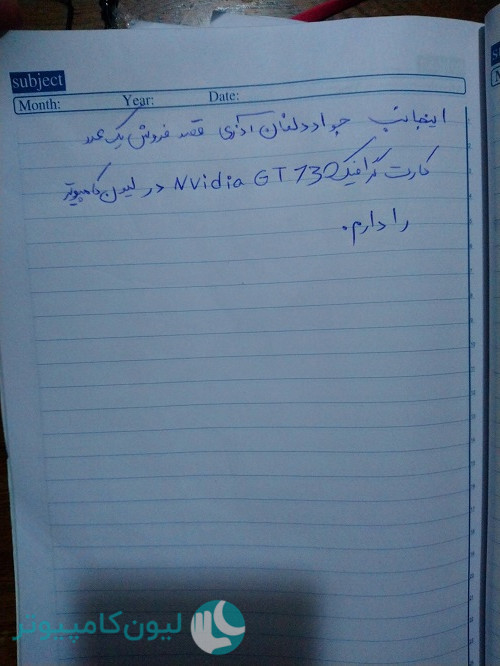 subject
Month: Year: Date:
اینجانب جواد دلخان آذری قصد فروش یک عدد
کارت گرافیک NVidia GT 730 در لیون کامپیوتر
را دارم.
لیون کامپیوتر